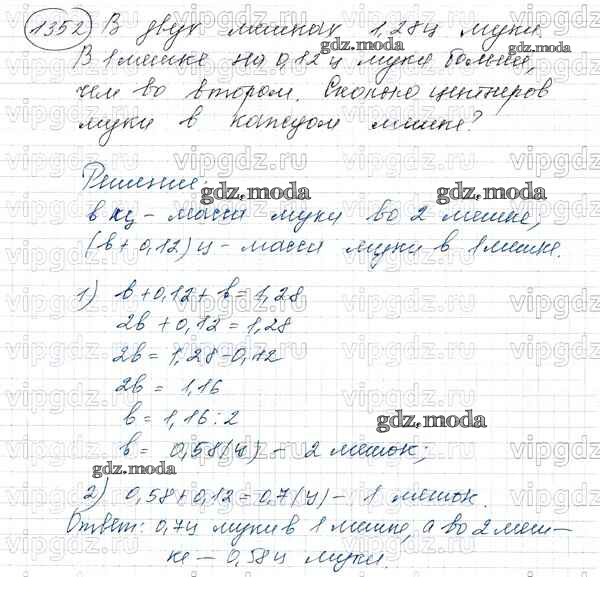 1352 В двух мешках 1,28ц муки.
В 1 мешке на 0,12ц муки больше,
чем во втором. Сколько центнеров
муки в каждом мешке?
Решение:
в кц - масса муки во 2 мешке,
(в + 0,12)ц - масса муки в 1 мешке.
1) в + 0,12 + в = 1,28
2в + 0,12 = 1,28
2в = 1,28 - 0,12
2в = 1,16
в = 1,16 : 2
в = 0,58(ц) - 2 мешок;
2) 0,58 + 0,12 = 0,7(ц) - 1 мешок.
Ответ: 0,7ц муки в 1 мешке, а во 2 меш-
ке - 0,58ц муки.
gdz.moda
vipgdz.ru